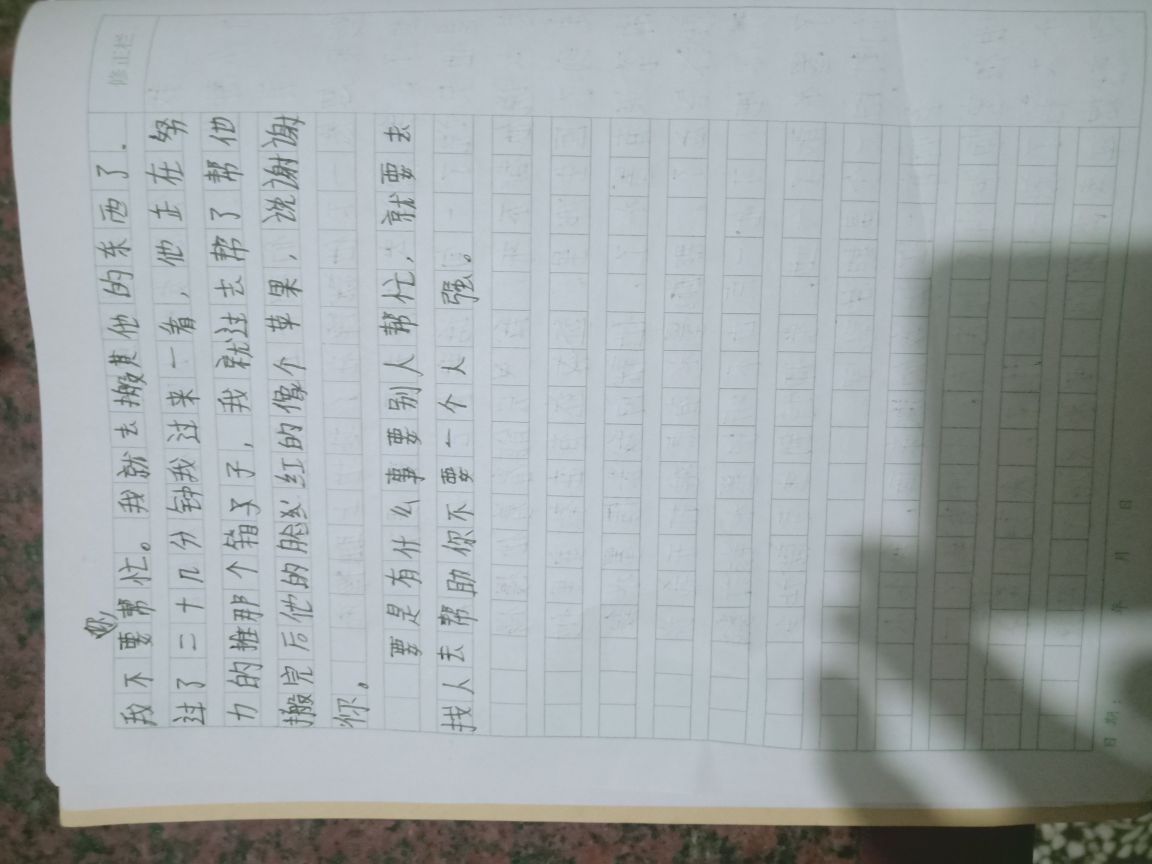 修正栏
我不要你帮忙。我就去搬其他的东西了.
过了二十几分钟我过来一看，他正在努
力的推那个箱子子，我就过去帮了帮他
搬完后他的脸红的像个苹果，说谢谢
你。
要是有什么事要别人帮忙，就要去
找人去帮助你不要一个人强。
日期： 年 月 日